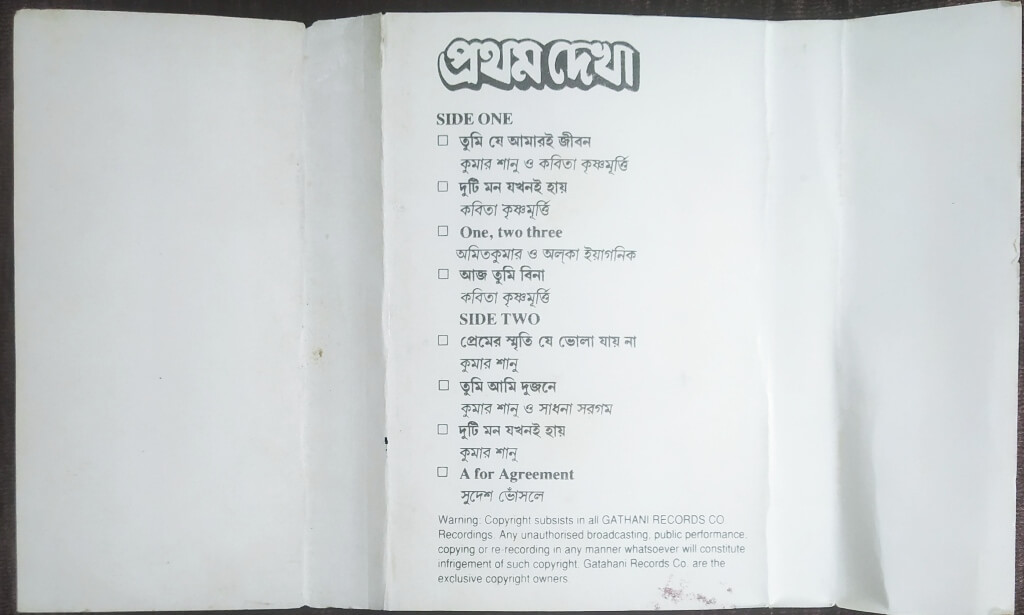 প্রথম দেখা
SIDE ONE
তুমি যে আমারই জীবন
কুমার শানু ও কবিতা কৃষ্ণমূর্ত্তি
দুটি মন যখনই হায়
কবিতা কৃষ্ণমূর্ত্তি
One, two three
অমিতকুমার ও অল্কা ইয়াগনিক
আজ তুমি বিনা
কবিতা কৃষ্ণমূর্ত্তি
SIDE TWO
প্রেমের স্মৃতি যে ভোলা যায় না
কুমার শানু
তুমি আমি দুজনে
কুমার শানু ও সাধনা সরগম
দুটি মন যখনই হায়
কুমার শানু
A for Agreement
সুদেশ ভোঁসলে
Warning: Copyright subsists in all GATHANI RECORDS CO.
Recordings. Any unauthorised broadcasting, public performance,
copying or re-recording in any manner whatsoever will constitute
infrigement of such copyright. Gatahani Records Co. are the
exclusive copyright owners.